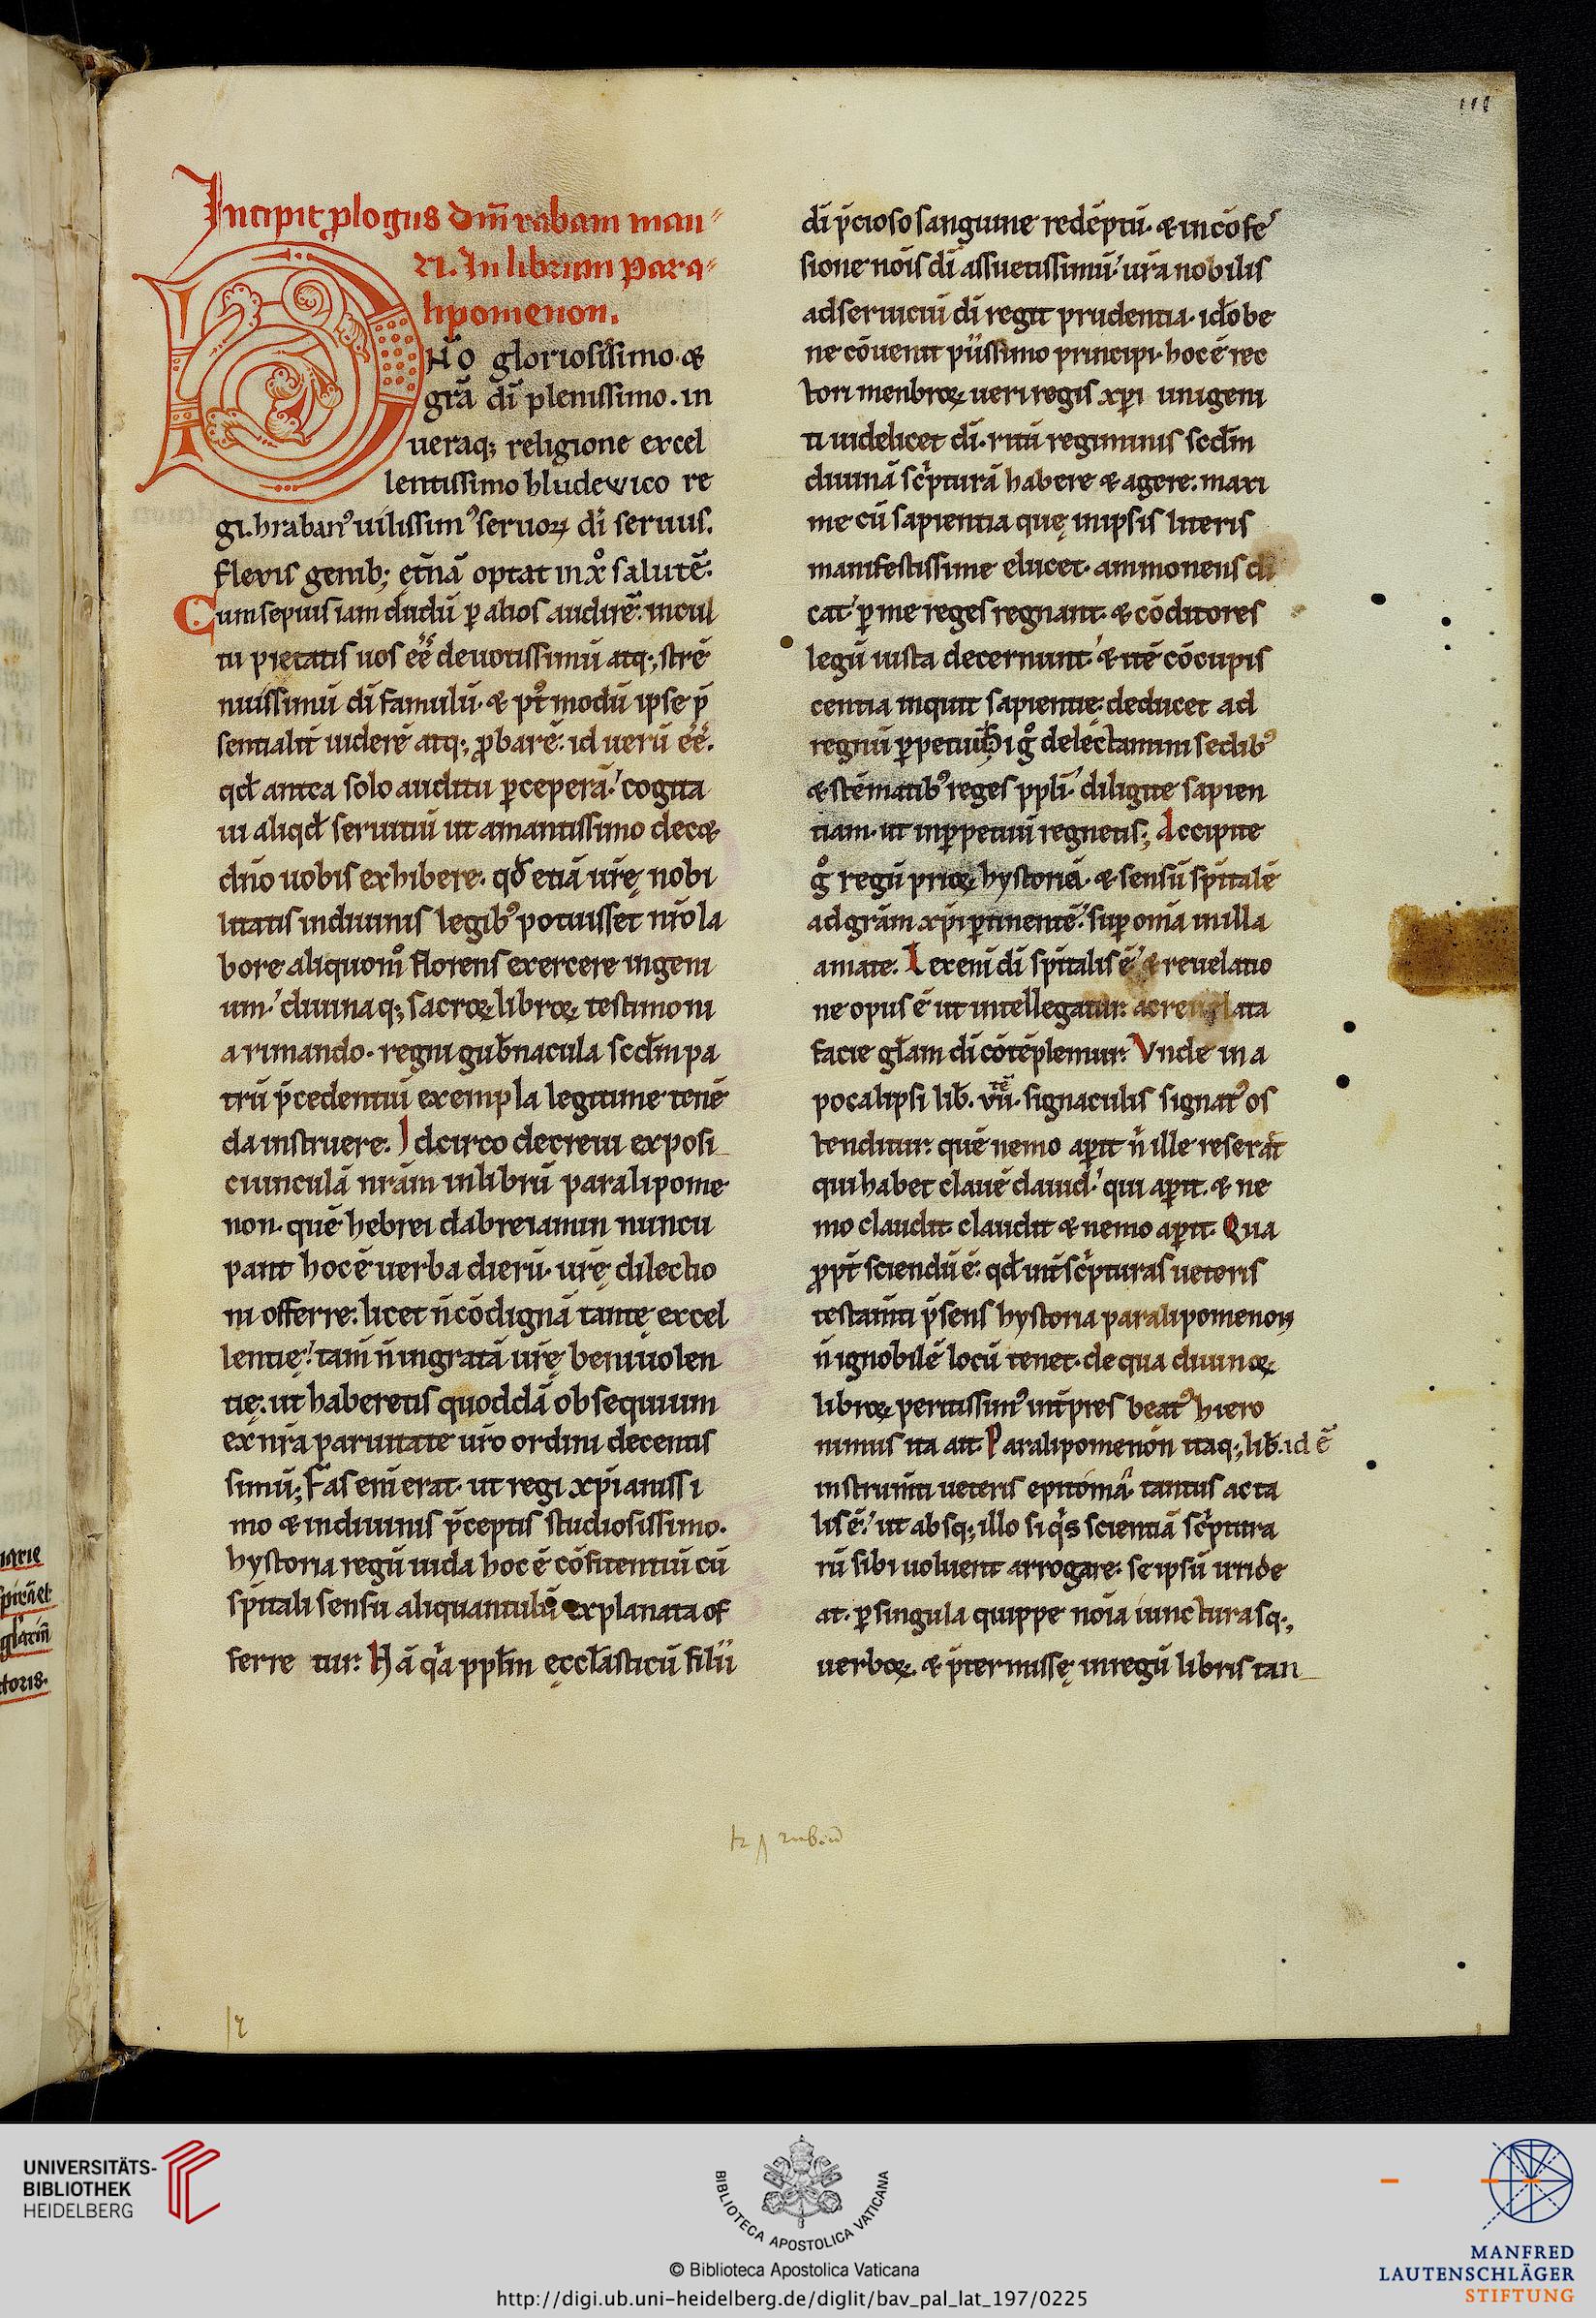 111
Incipit ꝓlogus dm̄ rabani mau
ri. In librum para
lipomenon.
DNō gloriosissimo ⁊
gr̄a dī plenissimo. in
ueraq; religione excel
lentissimo hludewico re
gi. hraban᾽ uilissim᾽ seruoꝝ dī seruus.
flexis genib; et̄nā optat in xō salutē.
Cum sepius iam dudū ꝑ alios audirē. in cul
tu pietatis uos eē deuotissimū atq; stre
nuissimū dī famulū. ⁊ pt̄ modū ipse p̄
sentialit̄ uiderē atq; ꝓbarē. id uerū eē.
qd̄ antea solo auditu ꝑceperā. cogita
ui aliqd̄ seruitiū ut amantissimo decet
dn̄o uobis exhibere. qd̄ etiā ur̄ę nobi
litatis in diuinis legib᾽ potuisset nr̄o la
bore aliquom̊ florens exercere ingeni
um. diuinaq; sacroꝝ libroꝝ testimoni
a rimando. regni gub̄nacula scd̄m pa
trū p̄cedentiū exempla legitime tenē
da instruere. Idcirco decreui exposi
ciunculā nr̄am in librū paralipome
non. quē hebrei dabreiamin nuncu
pant hoc ē uerba dierū. ur̄ę dilectio
ni offerre. licet n̄ cōdignā tantę excel
lentię. tam̄ n̄ ingratā ur̄ę beniuolen
tię. ut haberetis quoddā obsequium
ex nr̄a paruitate ur̄o ordini decentis
simū; Fas eni erat. ut regi xp̄ianissi
mo ⁊ in diuinis p̄ceptis studiosissimo.
hystoria regū iuda hoc ē cōfitentiū cū
sp̄itali sensu aliquantulū explanata of
ferre tur. Nā qa ppl̄m ęccl̄asticū filii
dī p̄cioso sanguine redēptū. ⁊ in cōfes
sione nōis dī assuetissimū. ur̄a nobilis
ad seruiciū dī regit prudentia. id̄o be
ne cōuenit piissimo principi. hoc ē rec
tori menbroꝝ ueri regis xp̄i unigeni
ti uidelicet dī. ritū regiminis scd̄m
diuinā sc̄pturā habere ⁊ agere. maxi
me cū sapientia quę in ipsis literis
manifestissime elucet. ammonens di
cat. ꝑ me reges regnant. ⁊ cōditores
legū iusta decernunt. ⁊ itē cōcupis
centia inquit sapientie. deducet ad
regnū ꝑpetuū. Si g̊ delectamini sedib᾽
⁊ stēmatib᾽ reges ppl̄i. diligite sapien
tiam. ut in ꝑpetuū regnetis; Accipite
g̊ regū prioꝝ hystoriā. ⁊ sensū sp̄italē
ad gr̄am xp̄i ꝑtinentē. suꝑ om̄ia in illa
amate. Lex eni dī sp̄italis ē. ⁊ reuelatio
ne opus ē ut intellegatur. ac reuelata
facie gl̄am dī cōtēplemur. Vnde in a
pocalipsi lib̄. vii. signaculis signat᾽ os
tenditur. quē nemo aꝑit n̄ ille reserat
qui habet clauē dauid. qui aꝑit. ⁊ ne
mo claudit. claudit ⁊ nemo aꝑit. Qua
ꝓpt̄ sciendū ē. qd̄ int̄ sc̄pturas ueteris
testam̄ti p̄sens hystoria paralipomenon
n̄ ignobilē locū tenet. de qua diuinoꝝ
libroꝝ peritissim᾽ int̄pres beat᾽ hiero
nimus ita ait. Paralipomenon itaq; lib̄. id ē
instrum̄ti ueteris epitoma. tantus ac ta
lis ē. ut absq; illo siq̇s scientiā sc̄ptura
rū sibi uoluerit arrogare. se ipsū irride
at. ꝑ singula quippe nōia iuncturasq;
uerboꝝ. ⁊ p̄termissę in regū libris tan
UNIVERSITÄTS-
BIBLIOTHEK
HEIDELBERG
BIBLIOTECA APOSTOLICA VATICANA
© Biblioteca Apostolica Vaticana
http://digi.ub.uni-heidelberg.de/diglit/bav_pal_lat_197/0225
MANFRED
LAUTENSCHLÄGER
STIFTUNG